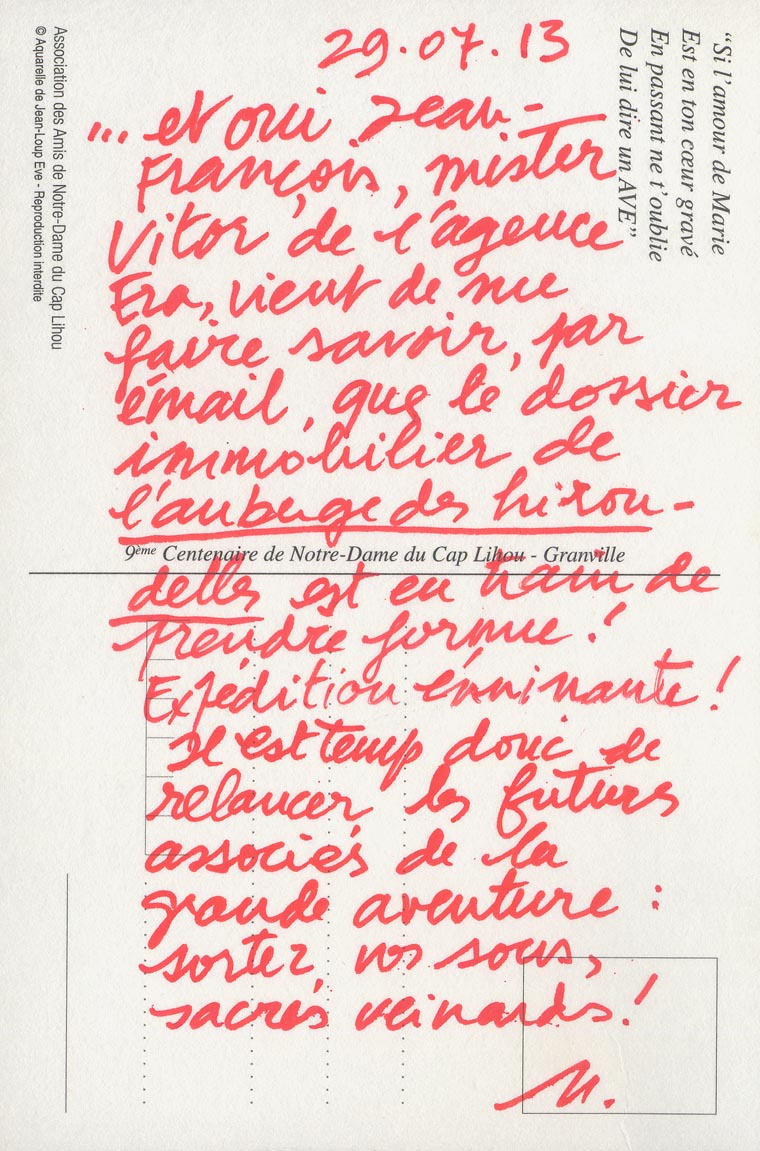 29.07.13
... et oui Jean-
François, mister
Vitor de l'agence
Era, vient de me
faire savoir, par
émail, que le dossier
immobilier de
l'auberge des hiron-
delles est en train de
prendre forme !
Expédition éminante !
Il est temp donc de
relancer les futurs
associés de la
grande aventure :
sortez vos sous,
sacrés veinards !
M.
"Si l'amour de Marie
Est en ton cœur gravé
En passant ne t'oublie
De lui dire un AVE"
Association des Amis de Notre-Dame du Cap Lihou
© Aquarelle de Jean-Loup Eve - Reproduction interdite
9ème Centenaire de Notre-Dame du Cap Lihou - Granville